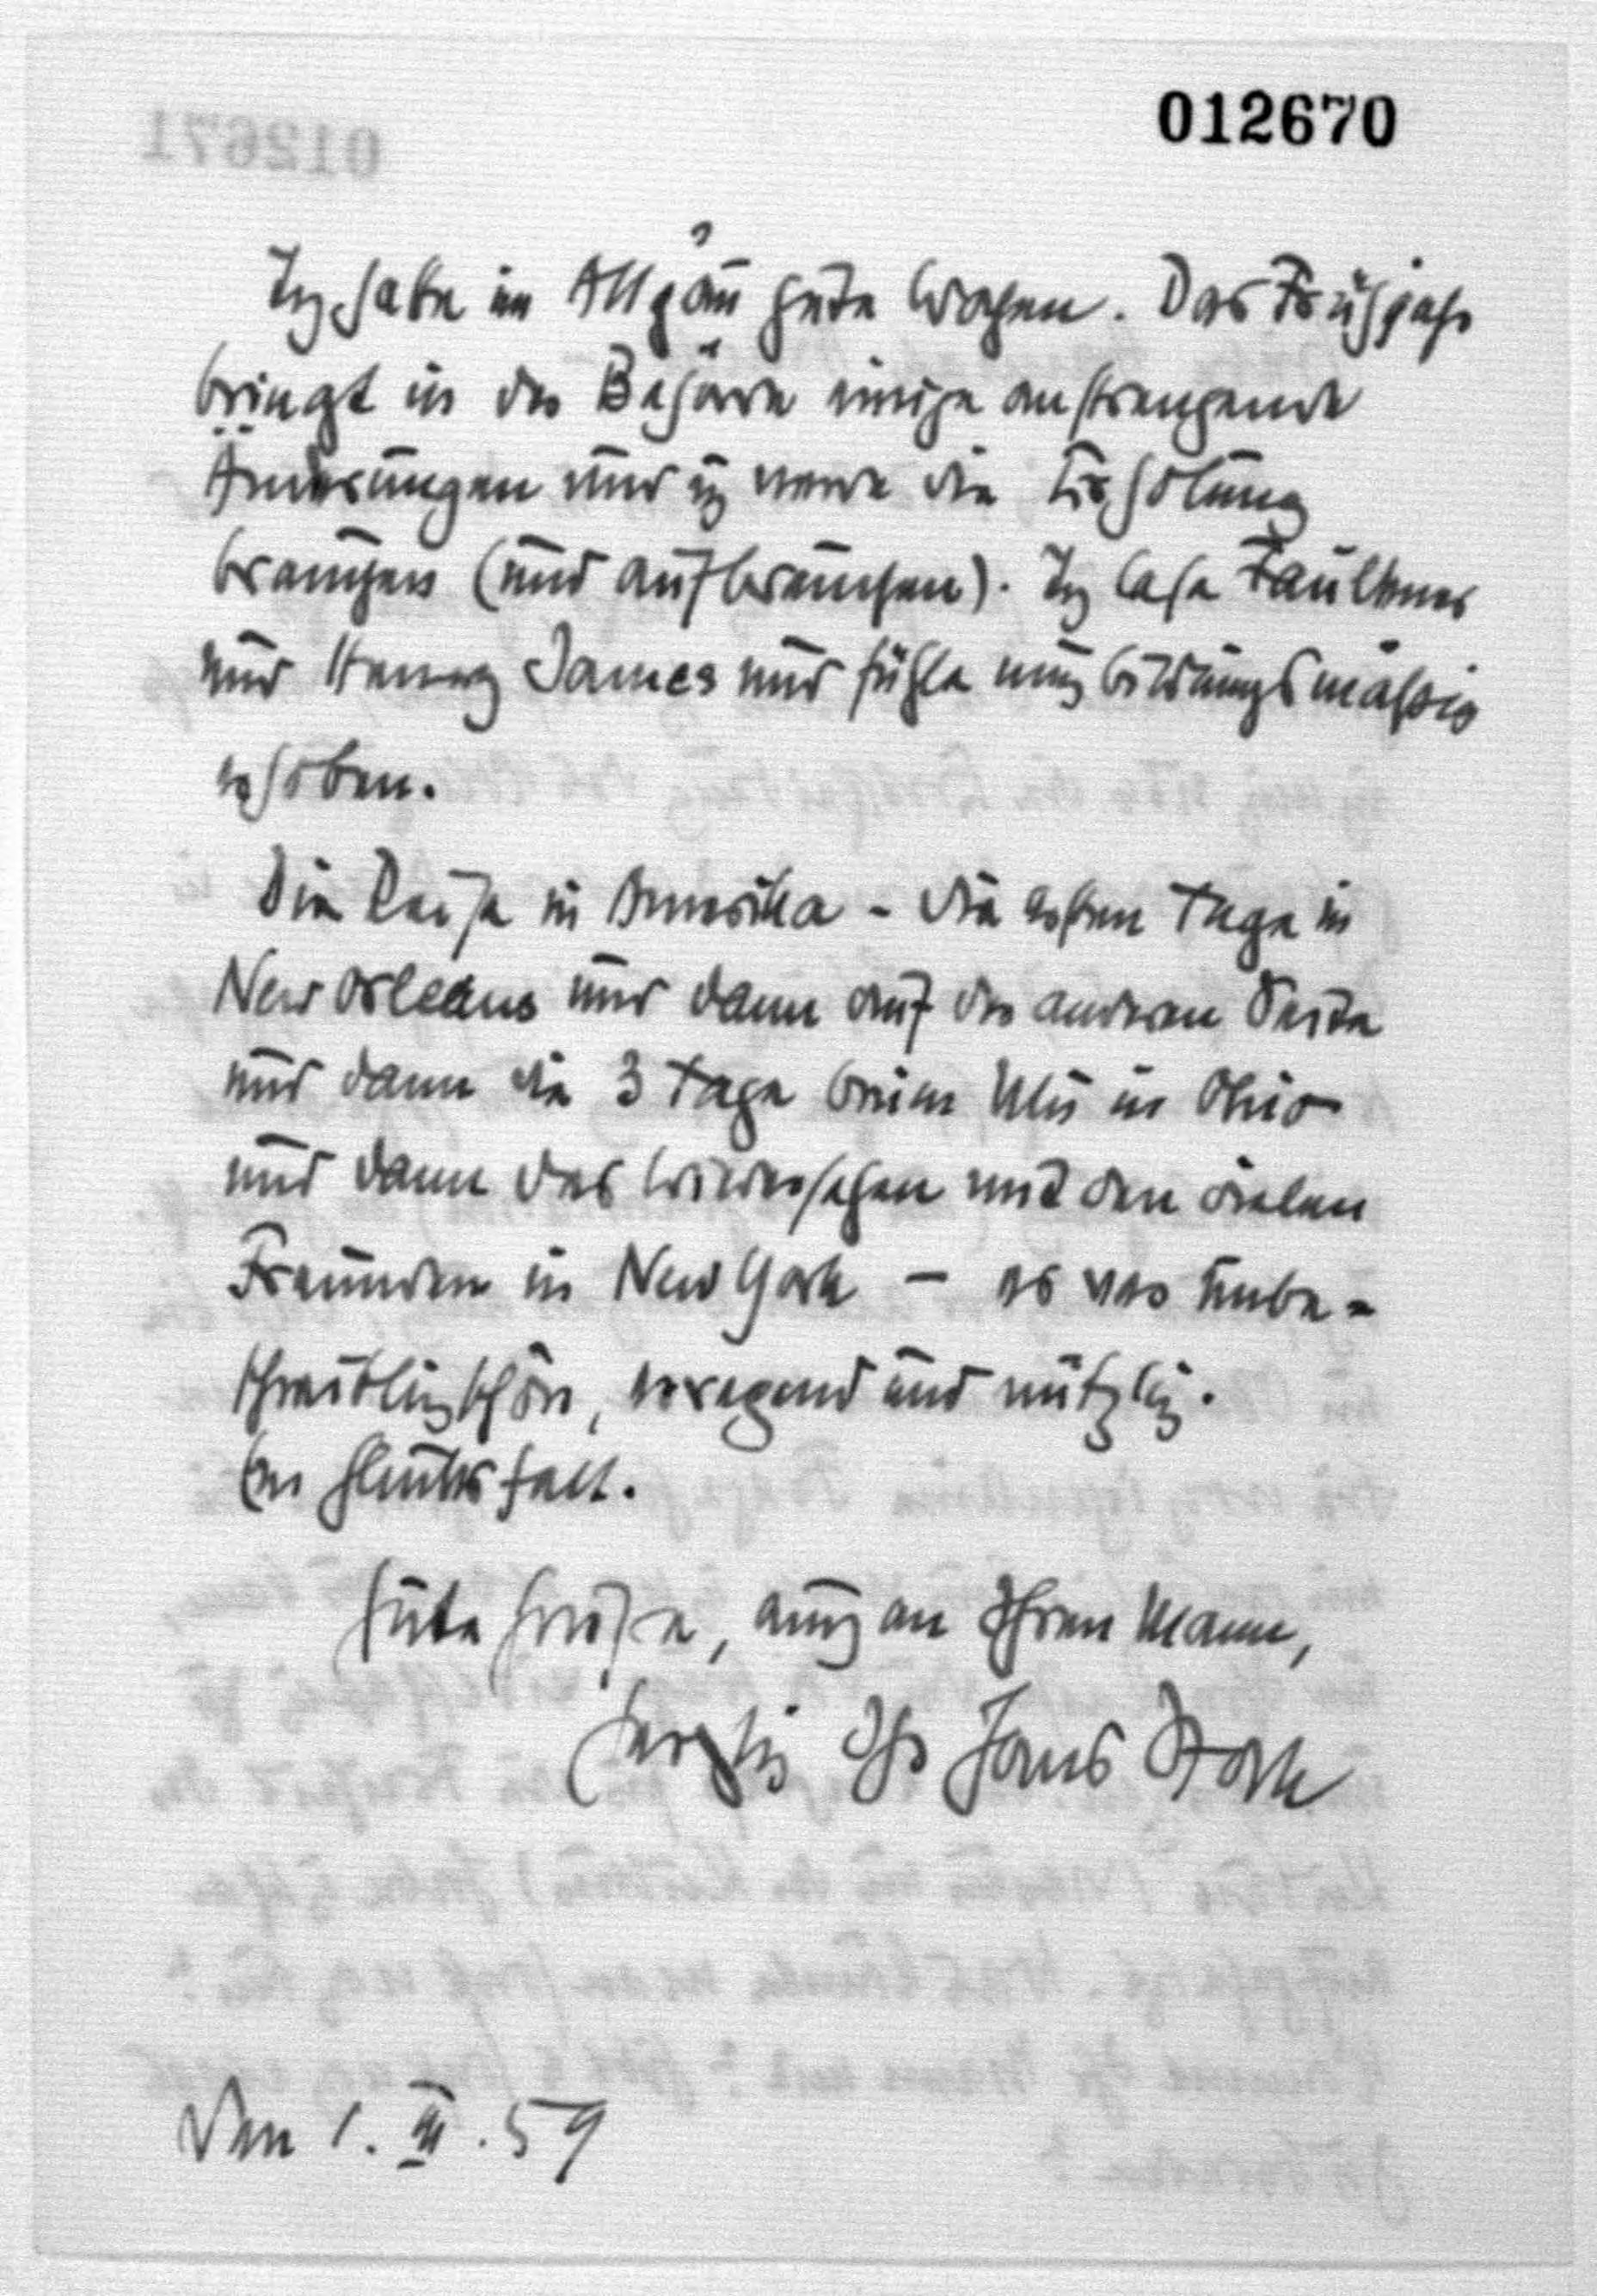 012670
Ich habe im Allgäu gute Wochen. Das Frühjahr
bringt in der Behörde einige anstrengende
Änderungen und ich werde die Erholung
brauchen (und aufbrauchen). Ich lese Faulkner
und Henry James und fühle mich bildungsmäßig
erhoben.
Die Reise in Amerika - die ersten Tage in
New Orleans und dann auf der anderen Seite
und dann die 3 Tage beim Uli in Ohio
und dann das Wiedersehen mit den vielen
Freunden in New York – es war unbe-
schreiblich schön, erregend und nützlich.
Ein Glücksfall.
Gute Grüße, auch an Ihren Mann,
herzlich Ihr Hans
Den 1. III. 59